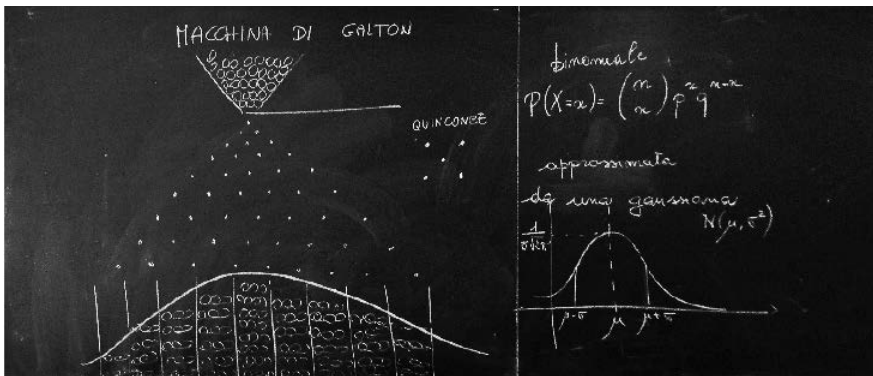 MACCHINA DI GALTON
QUINCONCE
binomiale
P(X=x) = (n x) p^x q^n-x
approssimata
da una gaussiana
N(μ, σ²)
1/σ√2π
μ-σ μ μ+σ